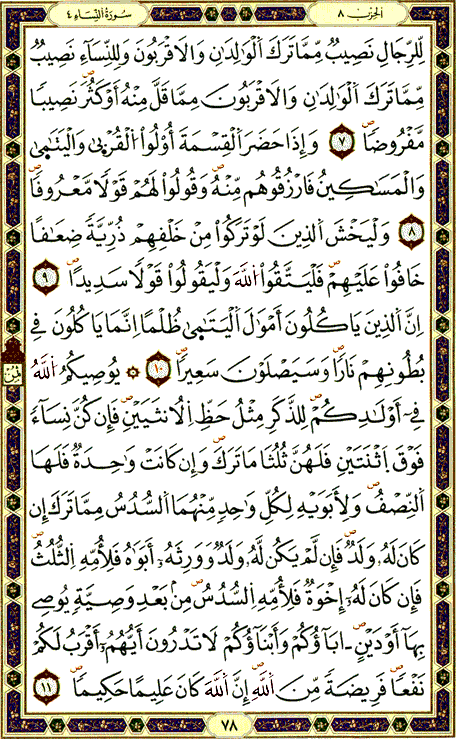 الحزب ٨
سورة النساء ٤
لِّلرِّجَالِ نَصِيبٌ مِّمَّا تَرَكَ اَ۬لْوَٰلِدَٰنِ وَالَاقْرَبُونَ وَلِلنِّسَآءِ نَصِيبٌ
مِّمَّا تَرَكَ اَ۬لْوَٰلِدَٰنِ وَالَاقْرَبُونَ مِمَّا قَلَّ مِنْهُ أَوْ كَثُرَ نَصِيباً
مَّفْرُوضاً ٧ وَإِذَا حَضَرَ اَ۬لْقِسْمَةَ أُوْلُواْ اُ۬لْقُرْب۪ىٰ وَالْيَتَٰم۪ىٰ
وَالْمَسَٰكِينُ فَارْزُقُوهُم مِّنْهُ وَقُولُواْ لَهُمْ قَوْلاً مَّعْرُوفاً
٨ وَلْيَخْشَ اَ۬لذِينَ لَوْ تَرَكُواْ مِنْ خَلْفِهِمْ ذُرِّيَّةً ضِعَٰفاً
خَافُواْ عَلَيْهِمْ فَلْيَتَّقُواْ اُ۬للَّهَ وَلْيَقُولُواْ قَوْلاً سَدِيداً ٩
اِنَّ اَ۬لذِينَ يَاكُلُونَ أَمْوَٰلَ اَ۬لْيَتَٰم۪ىٰ ظُلْماً اِنَّمَا يَاكُلُونَ فِے
بُطُونِهِمْ نَاراً وَسَيَصْلَوْنَ سَعِيراً ١٠ يُوصِيكُمُ اُ۬للَّهُ
فِےٓ أَوْلَٰدِكُمْ لِلذَّكَرِ مِثْلُ حَظِّ اِ۬لُانثَيَيْنِ فَإِن كُنَّ نِسَآءً
فَوْقَ اَ۪ثْنَتَيْنِ فَلَهُنَّ ثُلُثَا مَا تَرَكَ وَإِن كَانَتْ وَٰحِدَةٌ فَلَهَا
اَ۬لنِّصْفُ وَلِأَبَوَيْهِ لِكُلِّ وَٰحِدٍ مِّنْهُمَا اَ۬لسُّدُسُ مِمَّا تَرَكَ إِن
كَانَ لَهُۥ وَلَدٌ فَإِن لَّمْ يَكُن لَّهُۥ وَلَدٌ وَوَرِثَهُۥٓ أَبَوَٰهُ فَلِأُمِّهِ اِ۬لثُّلُثُ
فَإِن كَانَ لَهُۥٓ إِخْوَةٌ فَلِأُمِّهِ اِ۬لسُّدُسُ مِنۢ بَعْدِ وَصِيَّةٍ يُوصِے
بِهَآ أَوْ دَيْنٍ ـ ابَآؤُكُمْ وَأَبْنَآؤُكُمْ لَا تَدْرُونَ أَيُّهُمُۥٓ أَقْرَبُ لَكُمْ
نَفْعاً فَرِيضَةً مِّنَ اَ۬للَّهِ إِنَّ اَ۬للَّهَ كَانَ عَلِيماً حَكِيماً ١١
٧٨